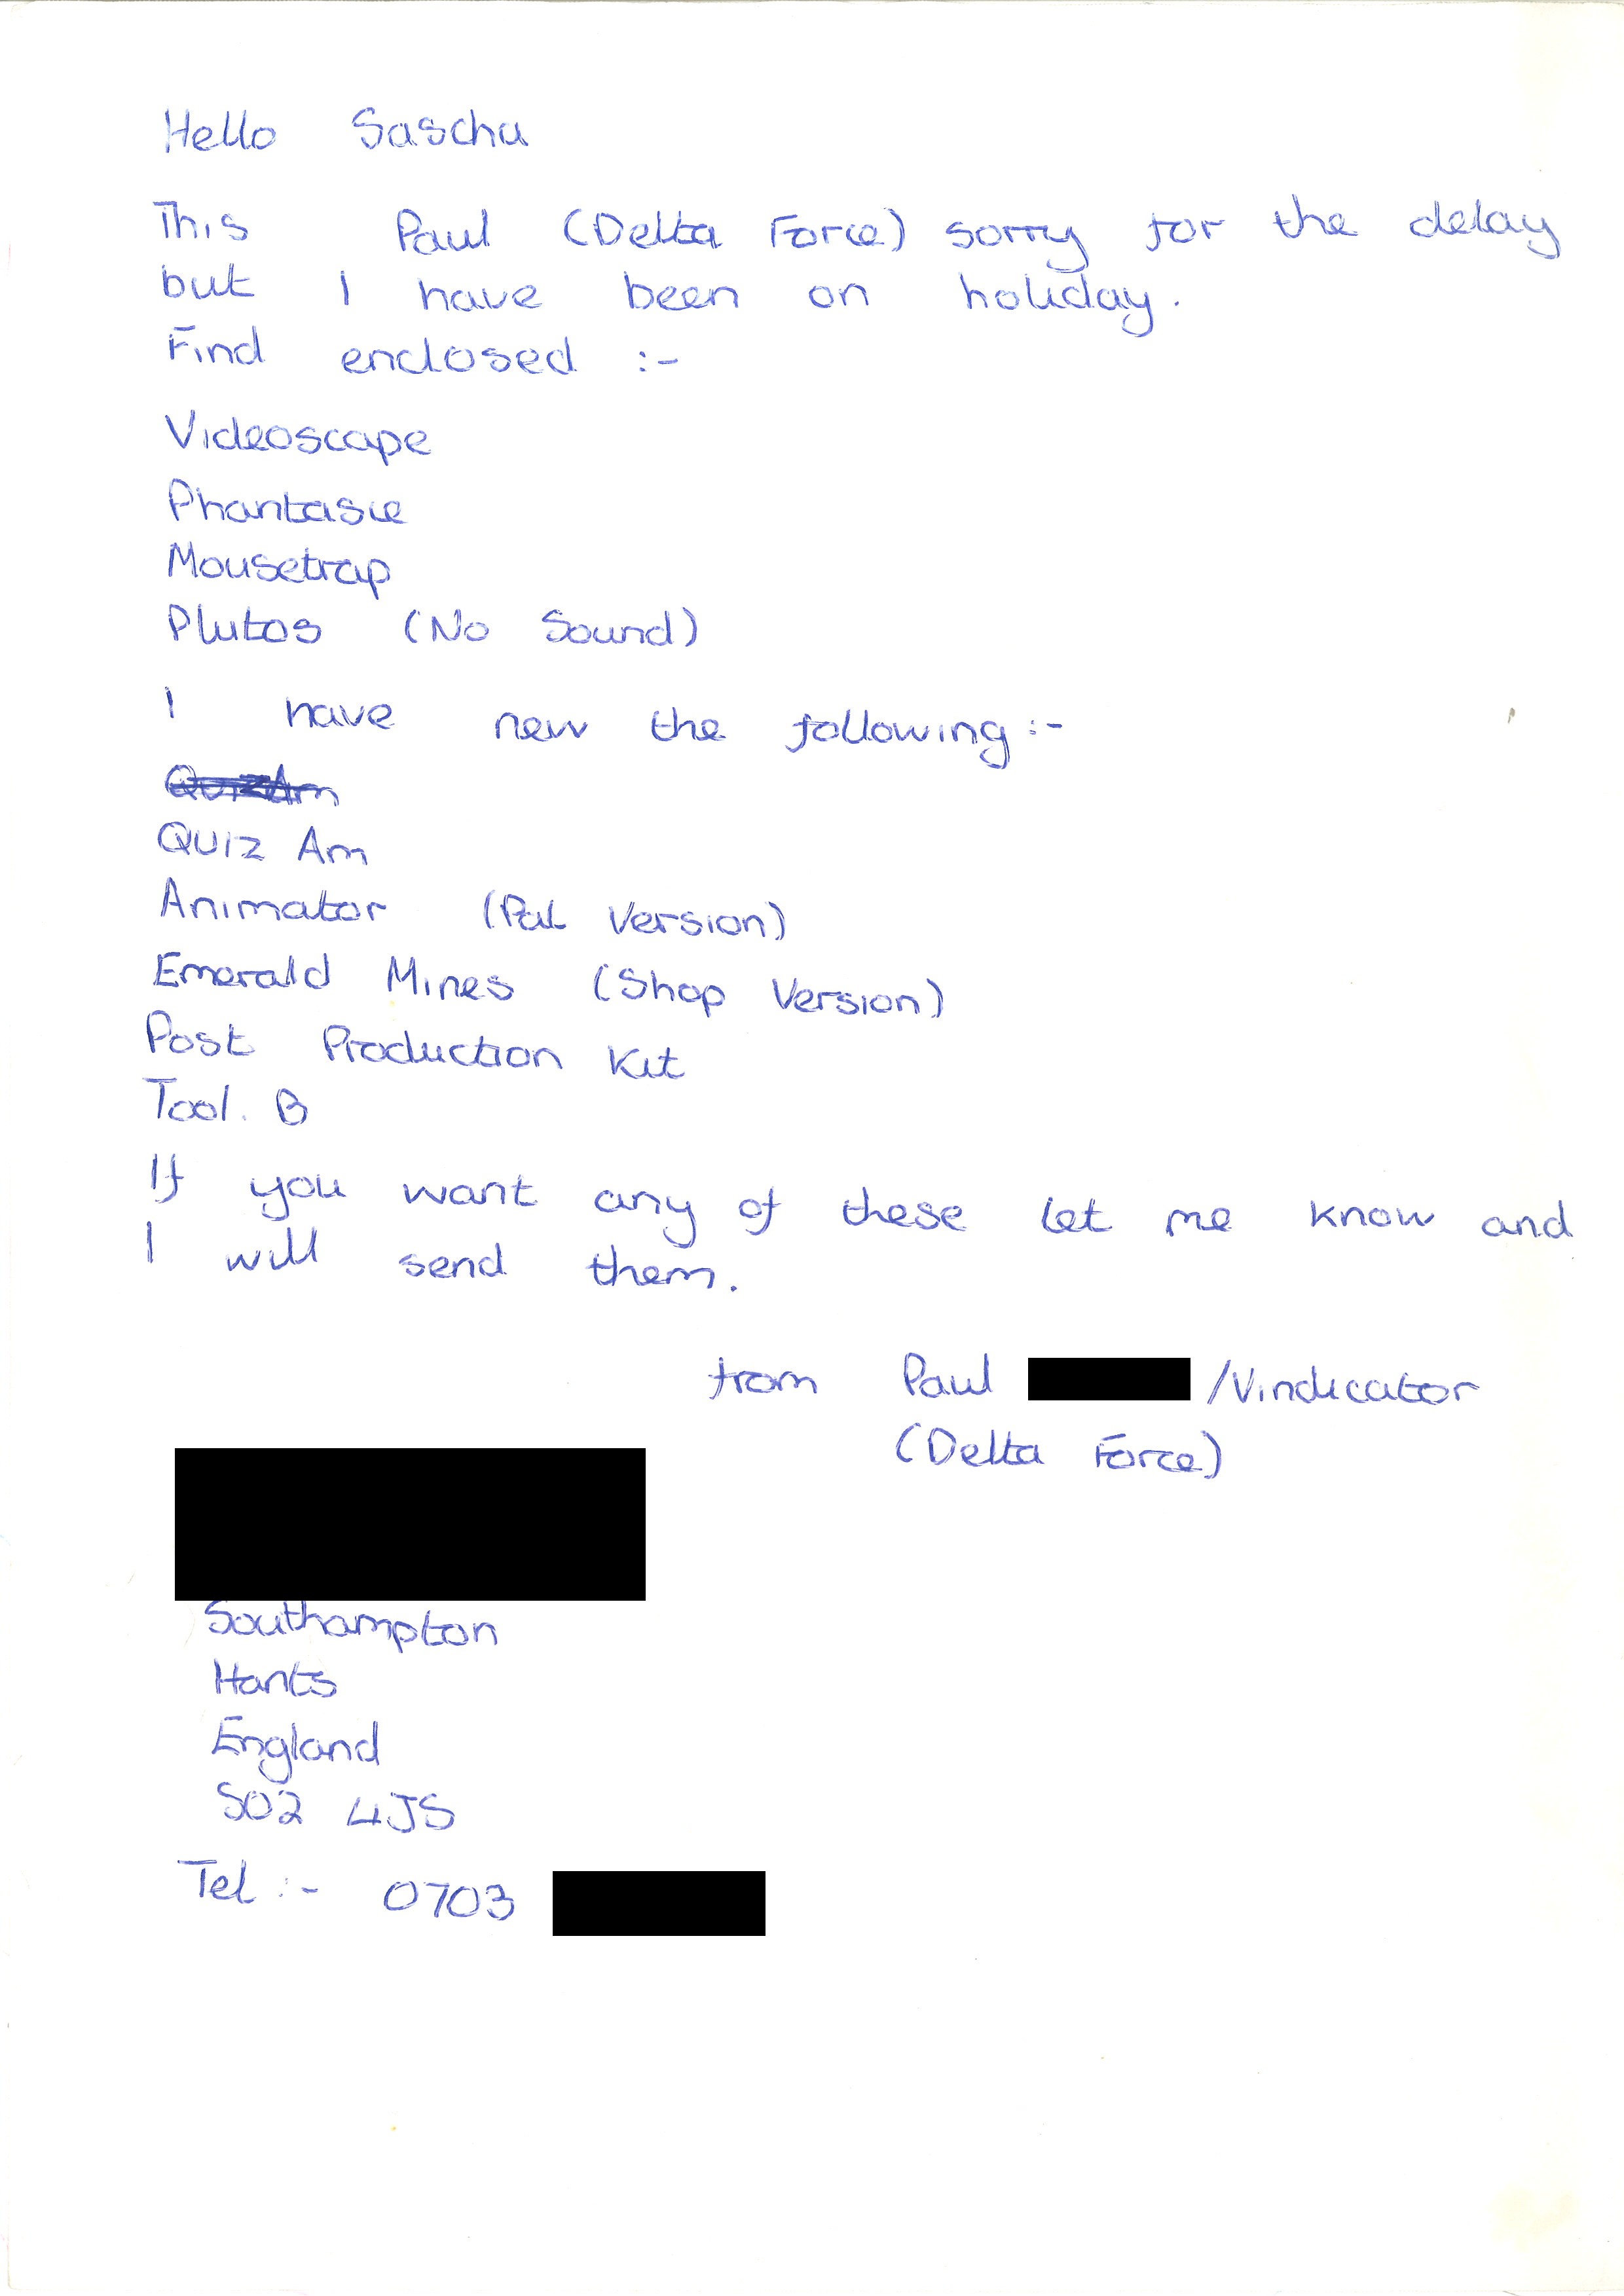 Hello Sascha
This Paul (Delta Force) sorry for the delay
but I have been on holiday.
Find enclosed :-
Videoscape
Phantasie
Mousetrap
Plutos (No Sound)
I have new the following :-
Quiz Am
Quiz Am
Animator (Pal Version)
Emerald Mines (Shop Version)
Post Production Kit
Tool. B
If you want any of these let me know and
I will send them.
from Paul /Vindicator
(Delta Force)
Southampton
Hants
England
SO2 4JS
Tel :- 0703